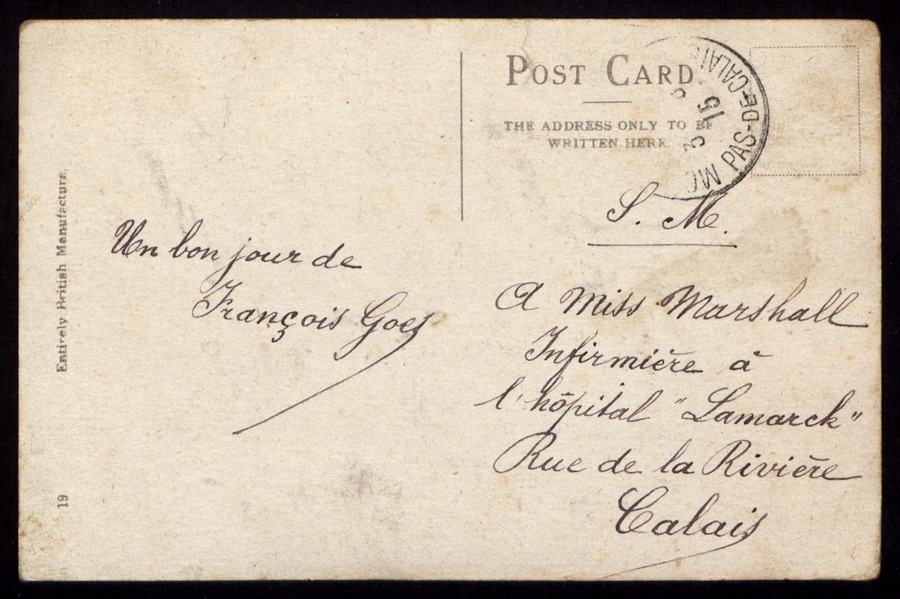 POST CARD
THE ADDRESS ONLY TO BE
WRITTEN HERE.
PAS-DE-CALAIS
S. M.
Un bon jour de
François Goes
A Miss Marshall
Infirmière à
l'hôpital "Lamarck"
Rue de la Rivière
Calais
Entirely British Manufacture.
19